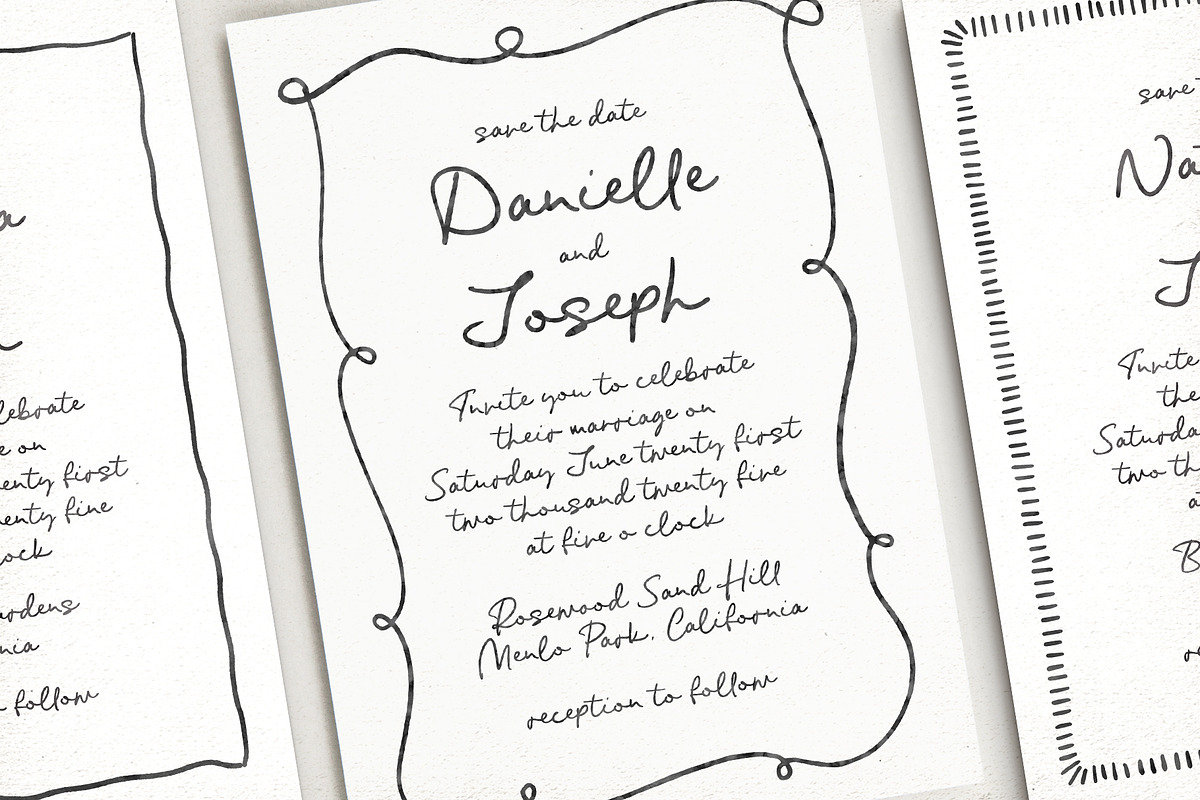 save the date
Danielle
and
Joseph
Invite you to celebrate
their marriage on
Saturday June twenty first
two thousand twenty five
at five o clock
Rosewood Sand Hill
Menlo Park. California
reception to follow
lebrate
e on
enty first
enty five
lock
ardens
nia
follow
save
Na
J
Invite
the
Saturda
two th
a
B